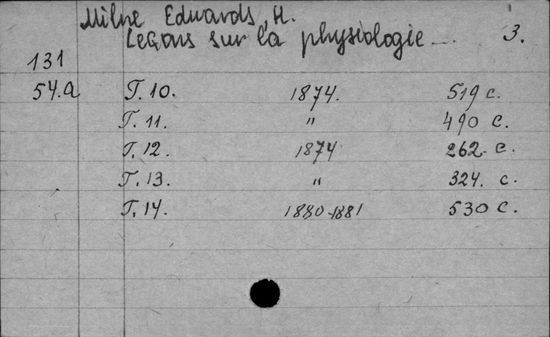 Milne Edwards, H.
Leçons sur la physiologie... 3.
131
54.a T.10. 1874. 519 c.
T.11. " 490 c.
T.12. 1874 262. c.
T.13. " 324. c.
T.14. 1880-1881 530 c.